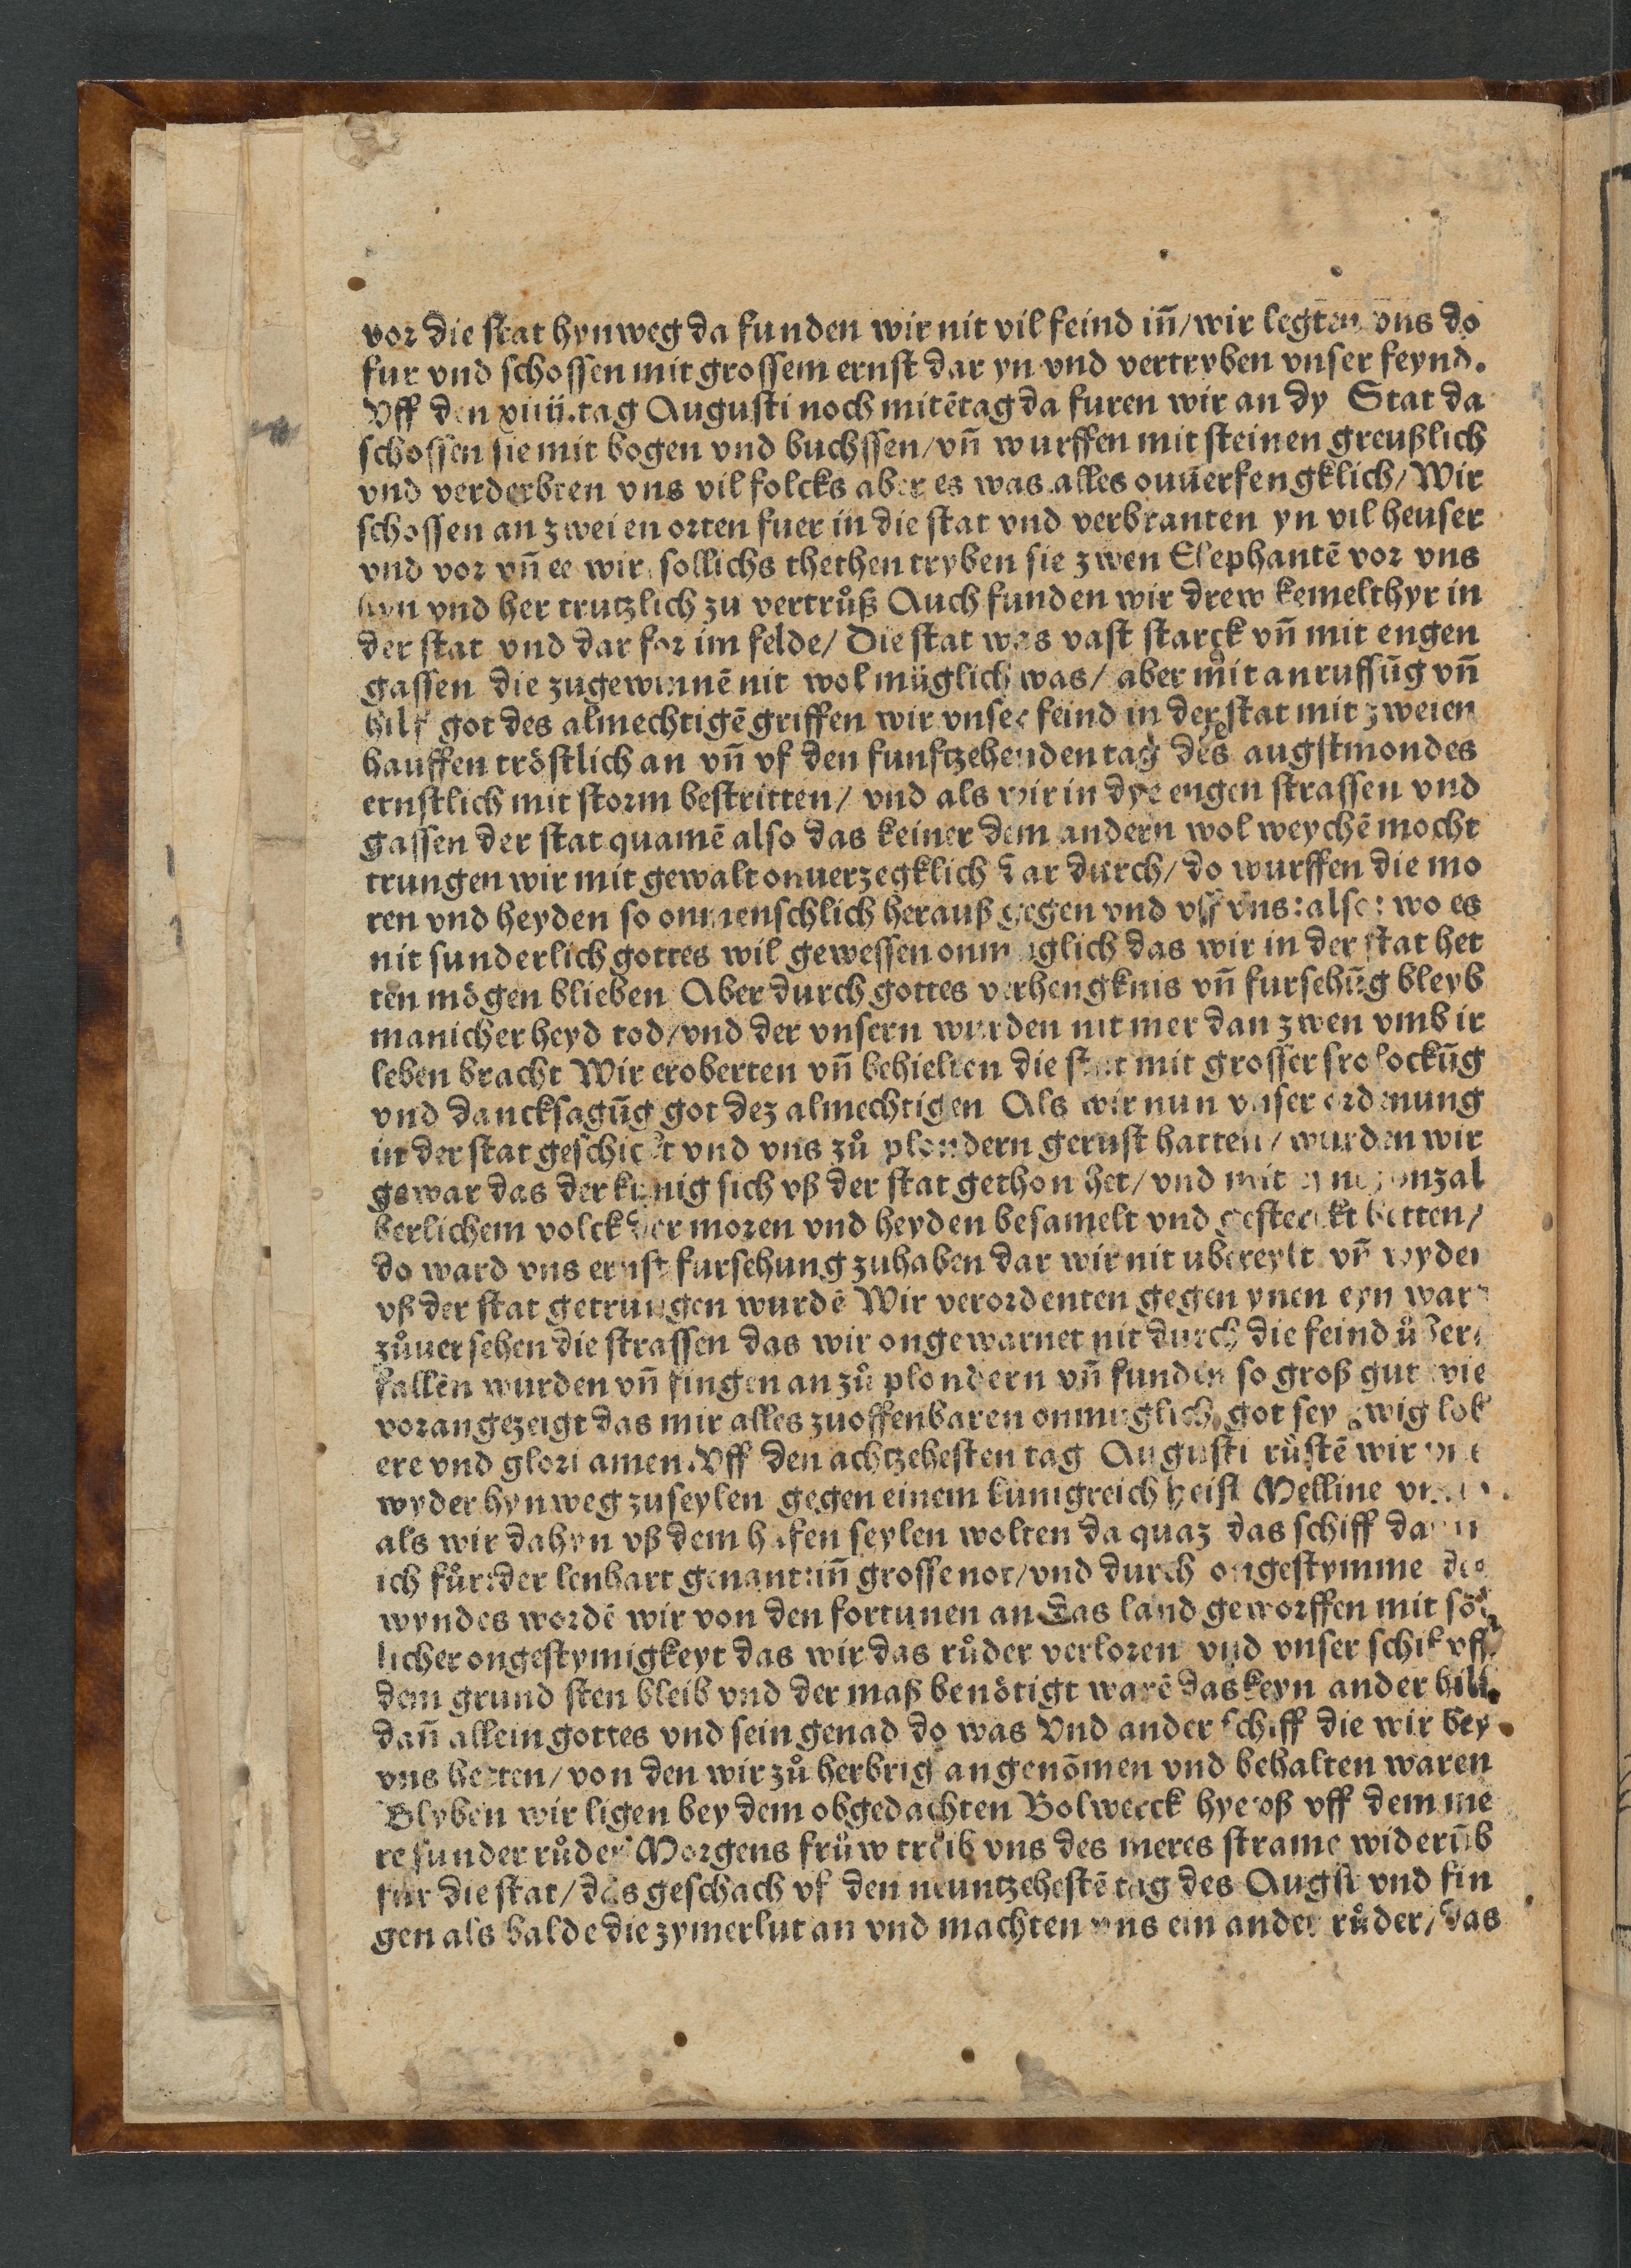 vor die stat hynweg da funden wir nit vil feind iñ/ wir legten vns do
fur vnd schossen mit grossem ernst dar yn vnd vertryben vnser feynd.
Vff den xiiij.tag Augusti noch mitētag da furen wir an dy Stat da
schossen sie mit bogen vnd buchssen/ vñ wurffen mit steinen greußlich
vnd verderbten vns vil folcks aber es was alles onuerfengklich/ Wir
schossen an zweien orten fuer in die stat vnd verbranten yn vil heuser
vnd vor vñ ee wir sollichs thethen tryben sie zwen Elephantē vor vns
hyn vnd her trutzlich zu vertrůß Auch funden wir drew kemelthyr in
der stat vnd dar for im felde/ Die stat was vast starck vñ mit engen
gassen die zugewinnē nit wol müglich was/ aber mit anruffũg vñ
hilf got des almechtigē griffen wir vnser feind in der stat mit zweien
hauffen tröstlich an vñ vf den funftzehenden tag des augstmondes
ernstlich mit storm bestritten/ vnd als wir in dye engen strassen vnd
gassen der stat quamē also das keiner dem andern wol weychē mocht
trungen wir mit gewalt onuerzegklich dar durch/ do wurffen die mo
ren vnd heyden so onmenschlich herauß gegen vnd vff vns: also: wo es
nit sunderlich gottes wil gewessen onmuglich das wir in der stat het
ten mögen blieben Aber durch gottes verhengknis vñ fursehũg bleyb
manicher heyd tod/ vnd der vnsern wurden nit mer dan zwen vmb ir
leben bracht Wir eroberten vñ behielten die stat mit grosser frolockũg
vnd dancksagũg got dez almechtigen Als wir nun vnser ordenung
in der stat geschickt vnd vns zů plondern gerust hatten/ wurden wir
gewar das der kunig sich vß der stat gethon het/ vnd mit onzal
berlichem volck der moren vnd heyden besamelt vnd gesterckt hetten/
do ward vns ernst fursehung zuhaben dar wir nit ubereylt vñ wyder
vß der stat getrungen wurdē Wir verordenten gegen ynen eyn wart
zůuersehen die strassen das wir ongewarnet nit durch die feind ůber
fallen wurden vñ fingen an zů plondern vñ funden so groß gut wie
vorangezeigt das mir alles zuoffenbaren onmuglich got sey ewig lob
ere vnd glori amen. Vff den achtzehesten tag Augusti růstē wir vns
wyder hynweg zuseylen gegen einem kunigreich heist Melline vnd
als wir dahyn vß dem hafen seylen wolten da quaz das schiff darin
ich fůr: der lenhart genant iñ grosse not/ vnd durch ongestymme des
wyndes wordē wir von den fortunen an das land geworffen mit söl
licher ongestymigkeyt das wir das růder verloren vnd vnser schif vff
dem grund sten bleib vnd der maß benötigt warē das keyn ander hilf
dañ allein gottes vnd sein genad do was Vnd ander schiff die wir bey
vns hetten/ von den wir zů herbrig angenōmen vnd behalten waren
Blyben wir ligen bey dem obgedachten Bolwerck hyevoß vff dem me
re sunder růder Morgens frůw treib vns des meres strame widerũb
fur die stat/ das geschach vf den neuntzehestē tag des Augst vnd fin
gen als balde die zymerlut an vnd machten vns ein ander růder/ das